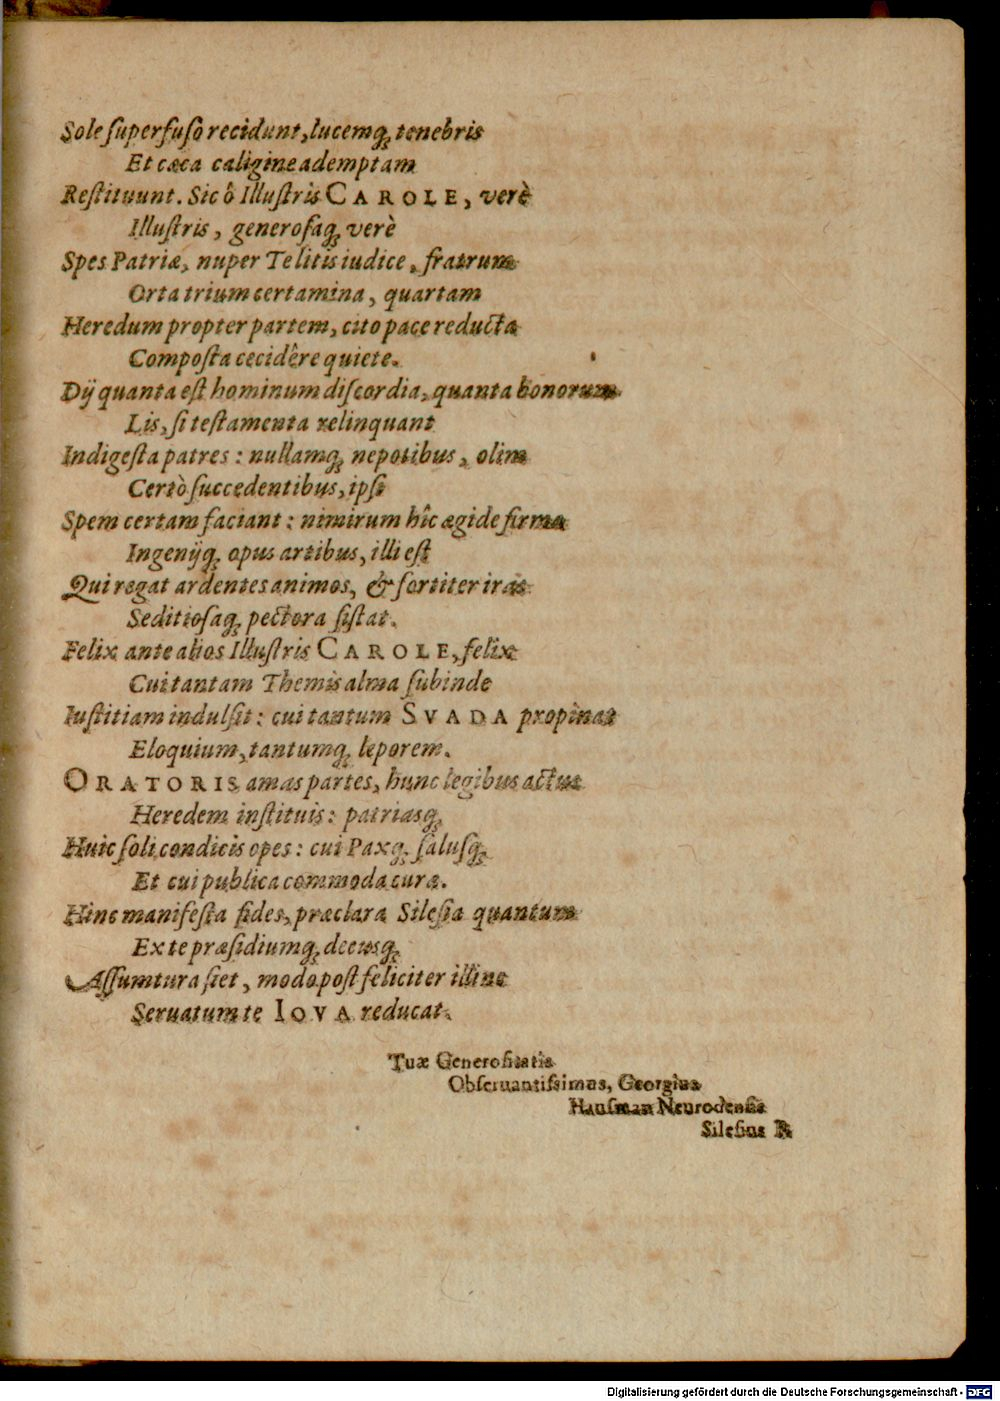 Sole ſuperfuſo recidunt, lucemq́ꝫ tenebris
Et cæca caligine ademptam
Reſtituunt. Sic ô Illuſtris CAROLE, verè
Illuſtris, generoſaq́ꝫ verè
Spes Patriæ, nuper Te litis iudice, fratrum
Orta trium certamina, quartam
Heredum propter partem, cito pace reducta
Compoſta cecidêre quiete.
Dij quanta eſt hominum diſcordia, quanta bonorum
Lis, ſi teſtamenta relinquant
Indigeſta patres: nullamq́ꝫ nepotibus, olim
Certò ſuccedentibus, ipſi
Spem certam faciant: nimirum hîc ægide firma
Ingenijq́ꝫ opus artibus, illi eſt
Qui regat ardentes animos, & fortiter iras
Seditioſaq́ꝫ pectora ſiſtat.
Felix ante alios Illuſtris CAROLE, felix
Cui tantam Themis alma ſubinde
Iuſtitiam indulſit: cui tantum SVADA propinat
Eloquium, tantumq́ꝫ leporem.
ORATORIS amas partes, hunc legibus actus
Heredem inſtituis: patriasq́ꝫ
Huic ſoli condicis opes: cui Paxq́ꝫ ſaluſq́ꝫ
Et cui publica commoda curæ.
Hinc manifeſta fides, præclara Sileſia quantum
Ex te præſidiumq́ꝫ decusq́ꝫ
Aſſumtura ſiet, modo poſt feliciter illinc
Seruatum te IOVA reducat.
Tuæ Generoſitatis
Obſeruantiſſimus, Georgius
Hauſman Neurodenſis
Sileſius
Digitalisierung gefördert durch die Deutsche Forschungsgemeinschaft - DFG